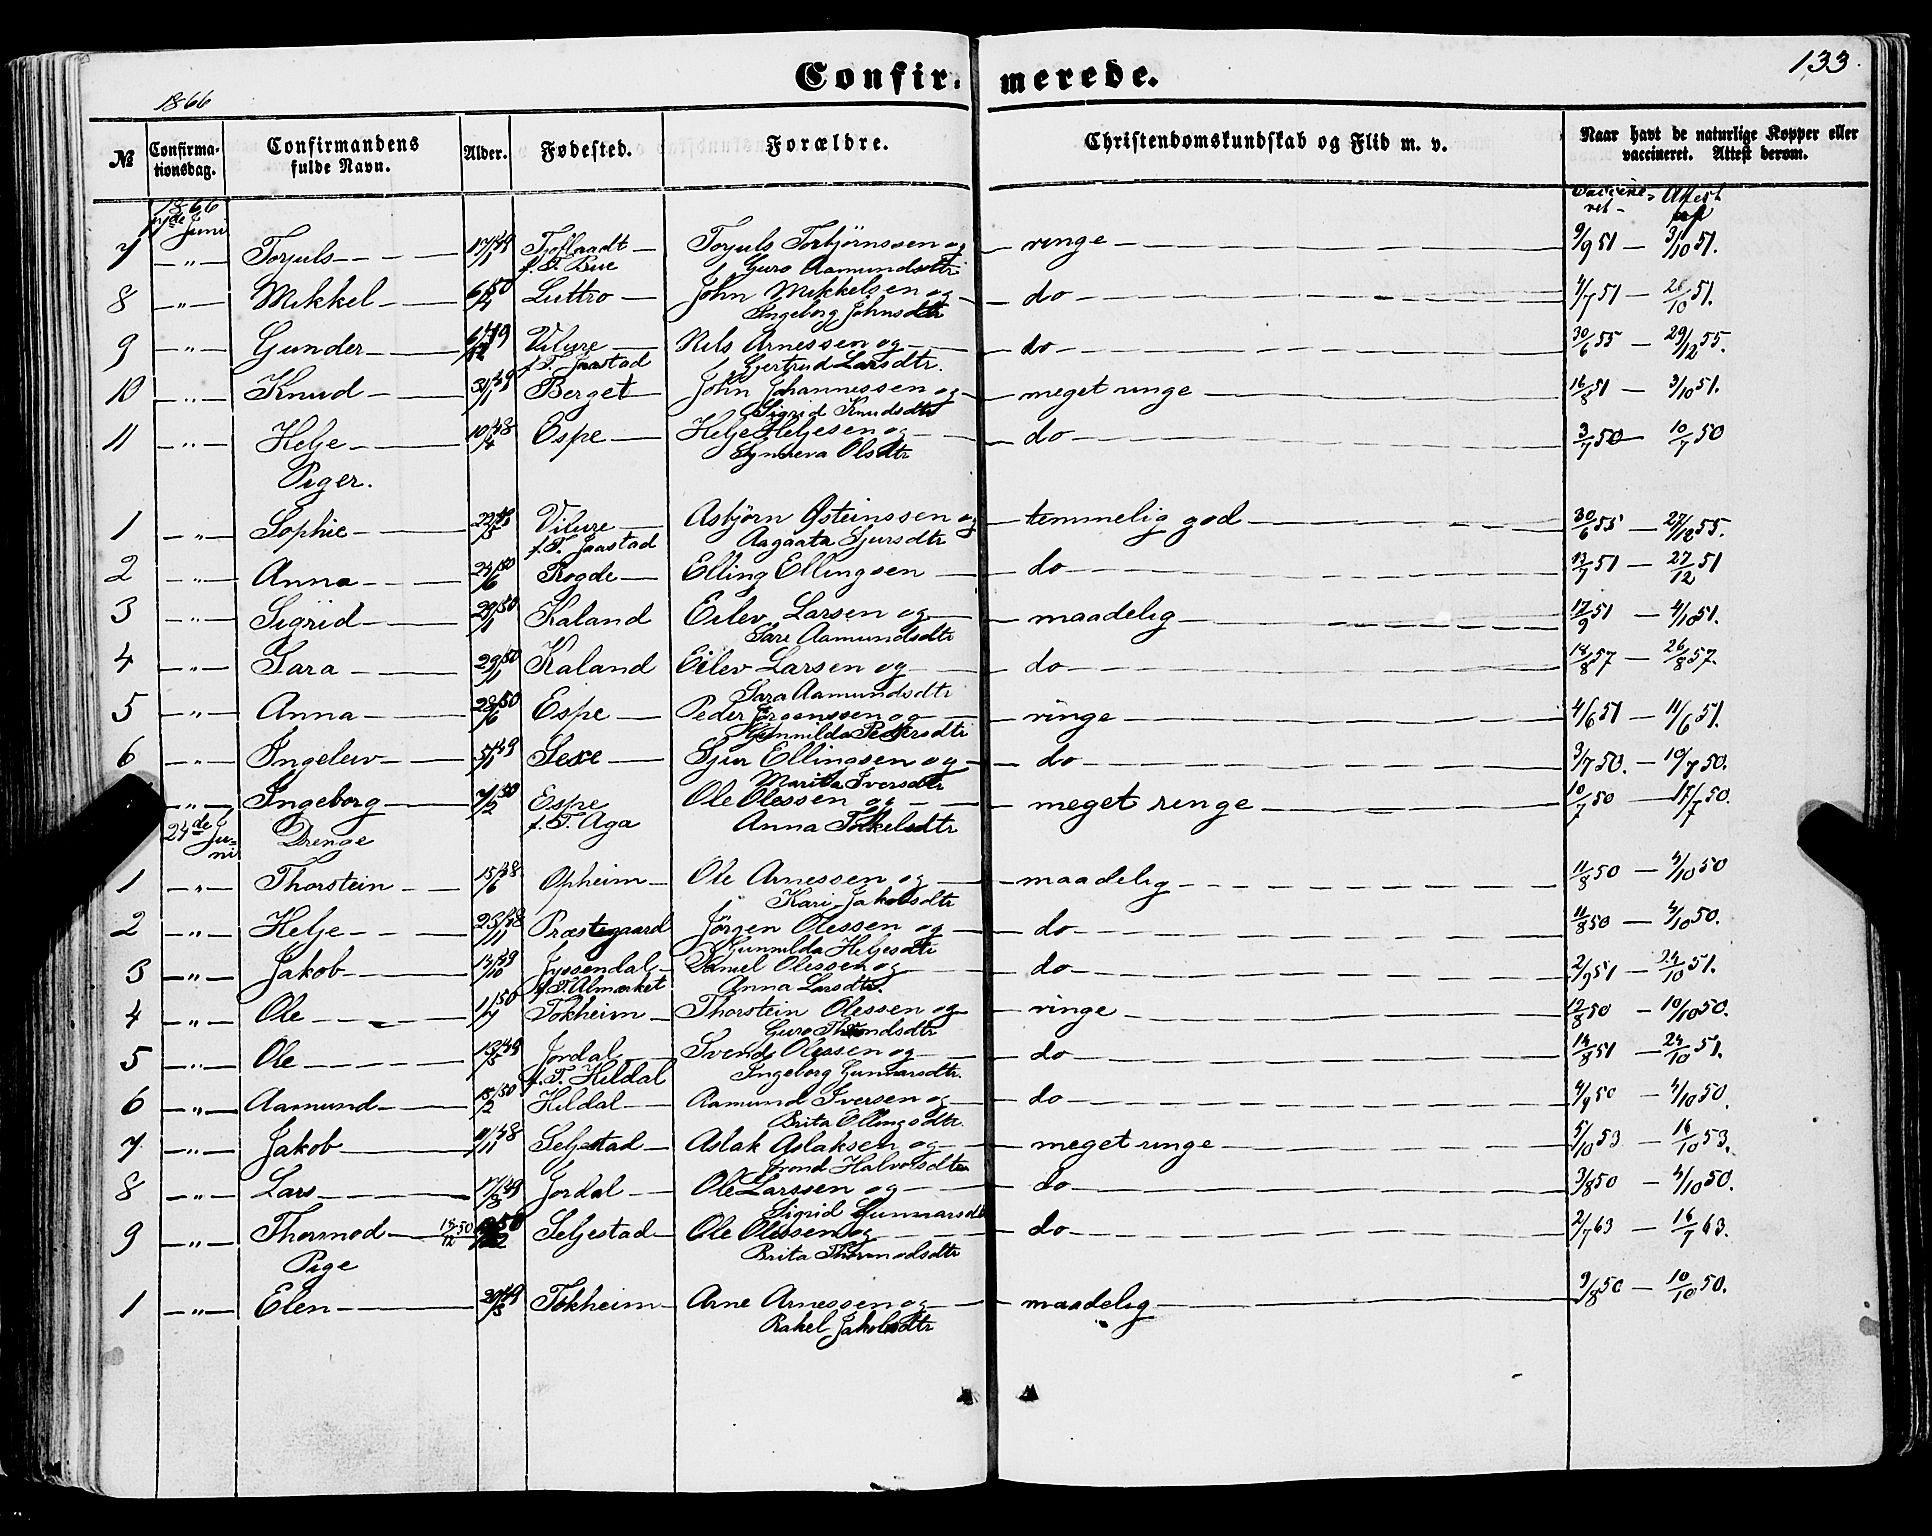 133.
Confirmerede.
1866
№ Confirmationsdag. Confirmandens fulde Navn. Alder. Fødested. Forældre. Christendomskundskab og Flid m. v. Naar havt de naturlige Kopper eller vaccineret. Attest derom.
1866 Vaccineret - Attest
Juni
7 -"- Torjuls Torjuls Torbjørnssen og ringe 9/9 51 - 3/10 51.
f. T. Bue Guro Aamundsdtr
8 -"- Mikkel 6/4 50 Luttro John Mikkelsen og do 4/7 51 - 51.
Ingeborg Johnsdtr
9 -"- Gunder Vilure Nils Arnessen og do 30/6 55 - 29/12 55.
f. T. Jaastad Gjertrud Larsdtr.
10 -"- Knud 31/1 49 Berget John Johannessen og meget ringe 16/8 51 - 3/10 51.
Sigrid Knudsdtr
11 -"- Helje 10/4 48 Espe Helje Heljesen og do 3/7 50 - 10/7 50
Synneva Olsdtr
Piger.
1 -"- Sophie Vilure Asbjörn Østeinssen og temmelig god 30/6 55 - 27/12 55.
f. T. Jaastad Aagaata Sjursdtr
2 -"- Anna 24/6 50 Rogde Elling Ellingsen do 13/7 51 - 27/12 51
3 -"- Sigrid 29/1 50 Kaland Eilev Larsen og maadelig 17/9 51 - 4/10 51.
Sare Aamundsdtr
4 -"- Sara 29/1 50 Kaland Eilev Larsen og do 18/8 57 - 26/8 57.
Sara Aamundsdtr
5 -"- Anna 28/6 50 Espe Peder Jörgenssen og ringe 4/6 51 - 11/6 51.
Gunnilda Pedersdtr
6 -"- Ingelev 5/1 49 Sexe Sjur Ellingsen og do 3/7 50. - 10/7 50.
Marita Iversdtr
-"- Ingeborg 7/2 50 Espe Ole Olessen og meget ringe 10/7 50 - 17/7 50.
f. T. Aga Anna Torkelsdtr
24de Juni Drenge
1 -"- Thorstein 15/6 48 Opheim Ole Arnessen og maadelig 11/8 50 - 4/10 50
Kari Jakobsdtr
2 -"- Helje 23/11 48 Præstegaard Jörgen Olessen og do 11/8 50 - 4/10 50.
Gunnilda Heljesdtr
3 -"- Jakob 14/10 49 Jyssendal Daniel Olessen og do 2/9 51 - 24/10 51.
f. T. Almerket Anna Larsdtr.
4 -"- Ole 50 Tokheim Thorstein Olessen og ringe 12/8 50 - 10/10 50.
Guro
5 -"- Ole 13/5 49 Jordal Svend Olessen og do 14/8 51 - 24/10 51.
f. T. Hildal Ingeborg Gunnarsdtr.
6 -"- Aamund 18/2 50 Hildal Aamund Iversen og do 4/9 50 - 4/10 50.
Brita Ellingsdtr.
7 -"- Jakob 48 Seljestad Aslak Aslaksen og meget ringe 5/10 53 - 16/10 53.
Halvorsdtr
8 -"- Lars 17/8 49 Jordal Ole Larssen og do 3/8 50 - 4/10 50.
Sigrid Gunnarsdtr
9 -"- Thormod 18/12 50 Seljestad Ole Olessen og do 2/7 63 - 16/7 63.
Brita Thormodsdtr
Pige
1 -"- Elen 20/3 49 Tokheim Arne Arnessen og maadelig 9/8 50 - 10/10 50.
Rakel Jakobsdtr